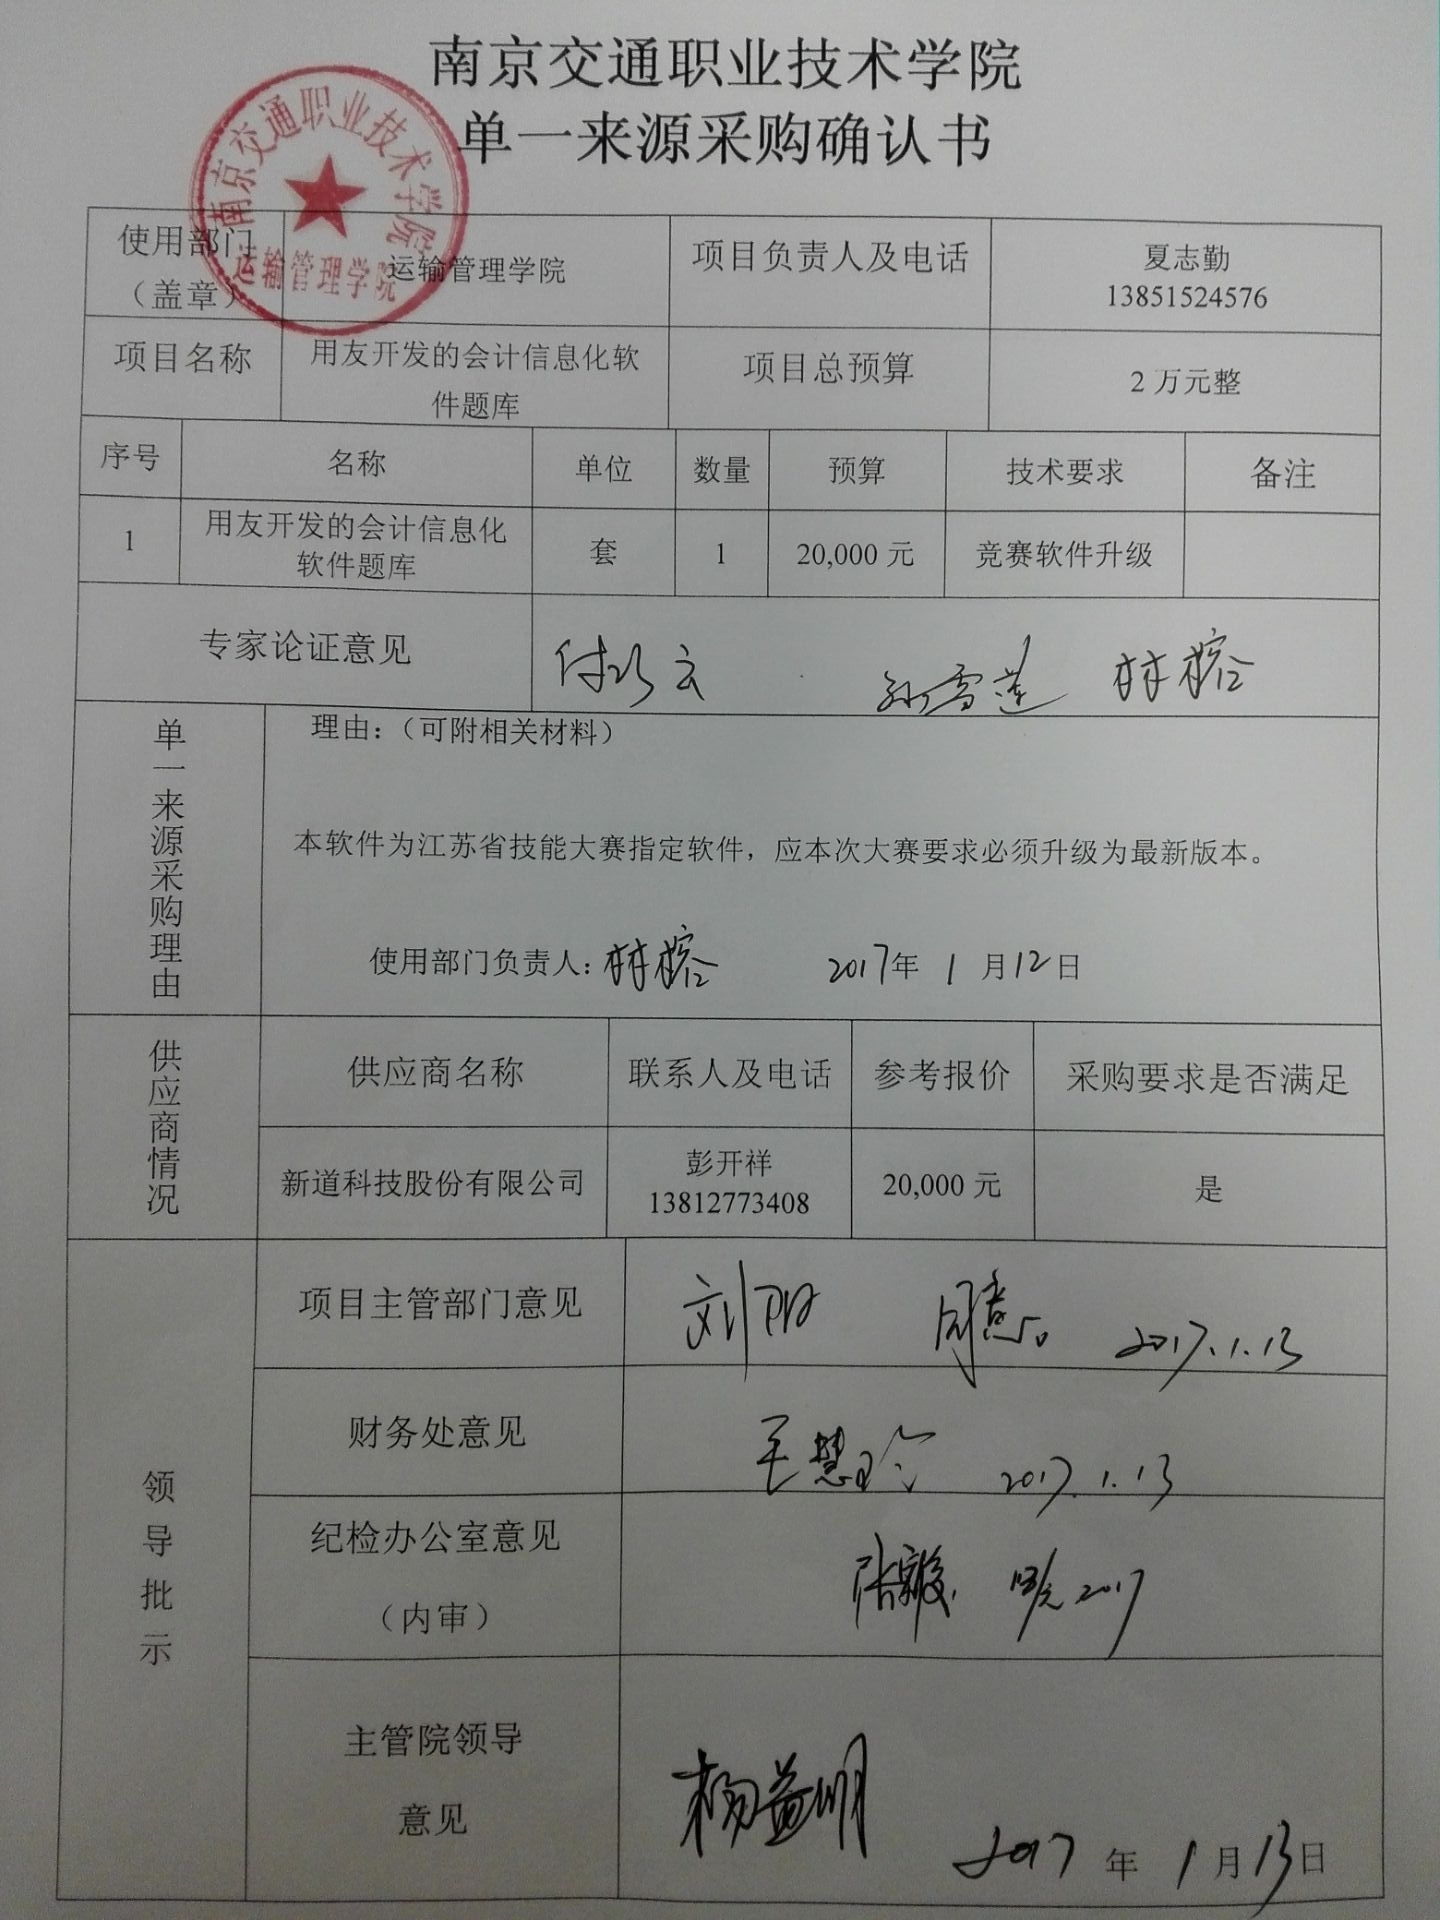 南京交通职业技术学院
单一来源采购确认书
南京交通职业技术学院
运输管理学院
使用部门
（盖章）
运输管理学院
项目负责人及电话
夏志勤
13851524576
项目名称
用友开发的会计信息化软
件题库
项目总预算
2 万元整
序号 名称 单位 数量 预算 技术要求 备注
1
用友开发的会计信息化
软件题库
套 1 20,000 元 竞赛软件升级
专家论证意见
孙雪莲 林榕
单一来源采购理由
理由：（可附相关材料）
本软件为江苏省技能大赛指定软件，应本次大赛要求必须升级为最新版本。
使用部门负责人：林榕 2017年 1 月12日
供应商情况
供应商名称 联系人及电话 参考报价 采购要求是否满足
新道科技股份有限公司
彭开祥
13812773408
20,000 元 是
领导批示
项目主管部门意见
刘阳 同意。 2017.1.13
财务处意见
王慧玲 2017.1.13
纪检办公室意见
（内审）
2017
主管院领导
意见
杨益明
2017 年 1 月 13 日